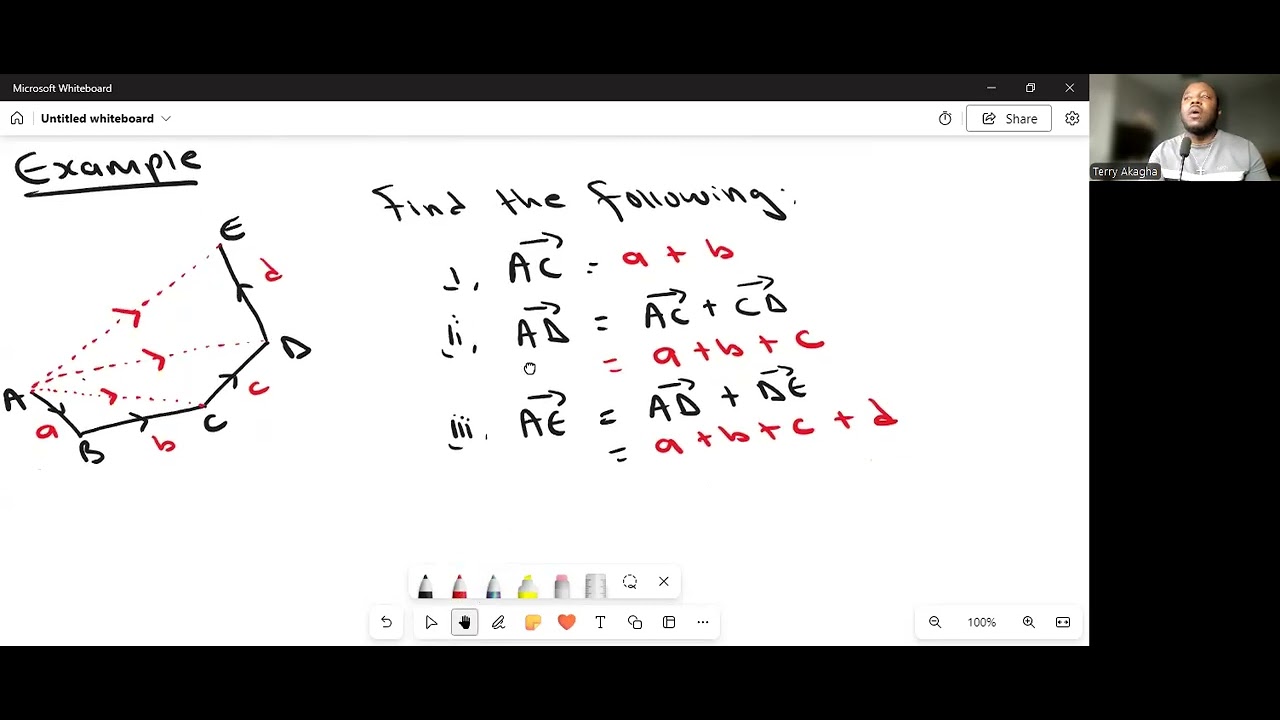 Microsoft Whiteboard
Untitled whiteboard
Share
Terry Akagha
Example
Find the following:
i. AC = a + b
ii. AD = AC + CD
= a + b + c
iii. AE = AD + DE
= a + b + c + d
E
d
D
A
c
C
a
b
B
100%
T